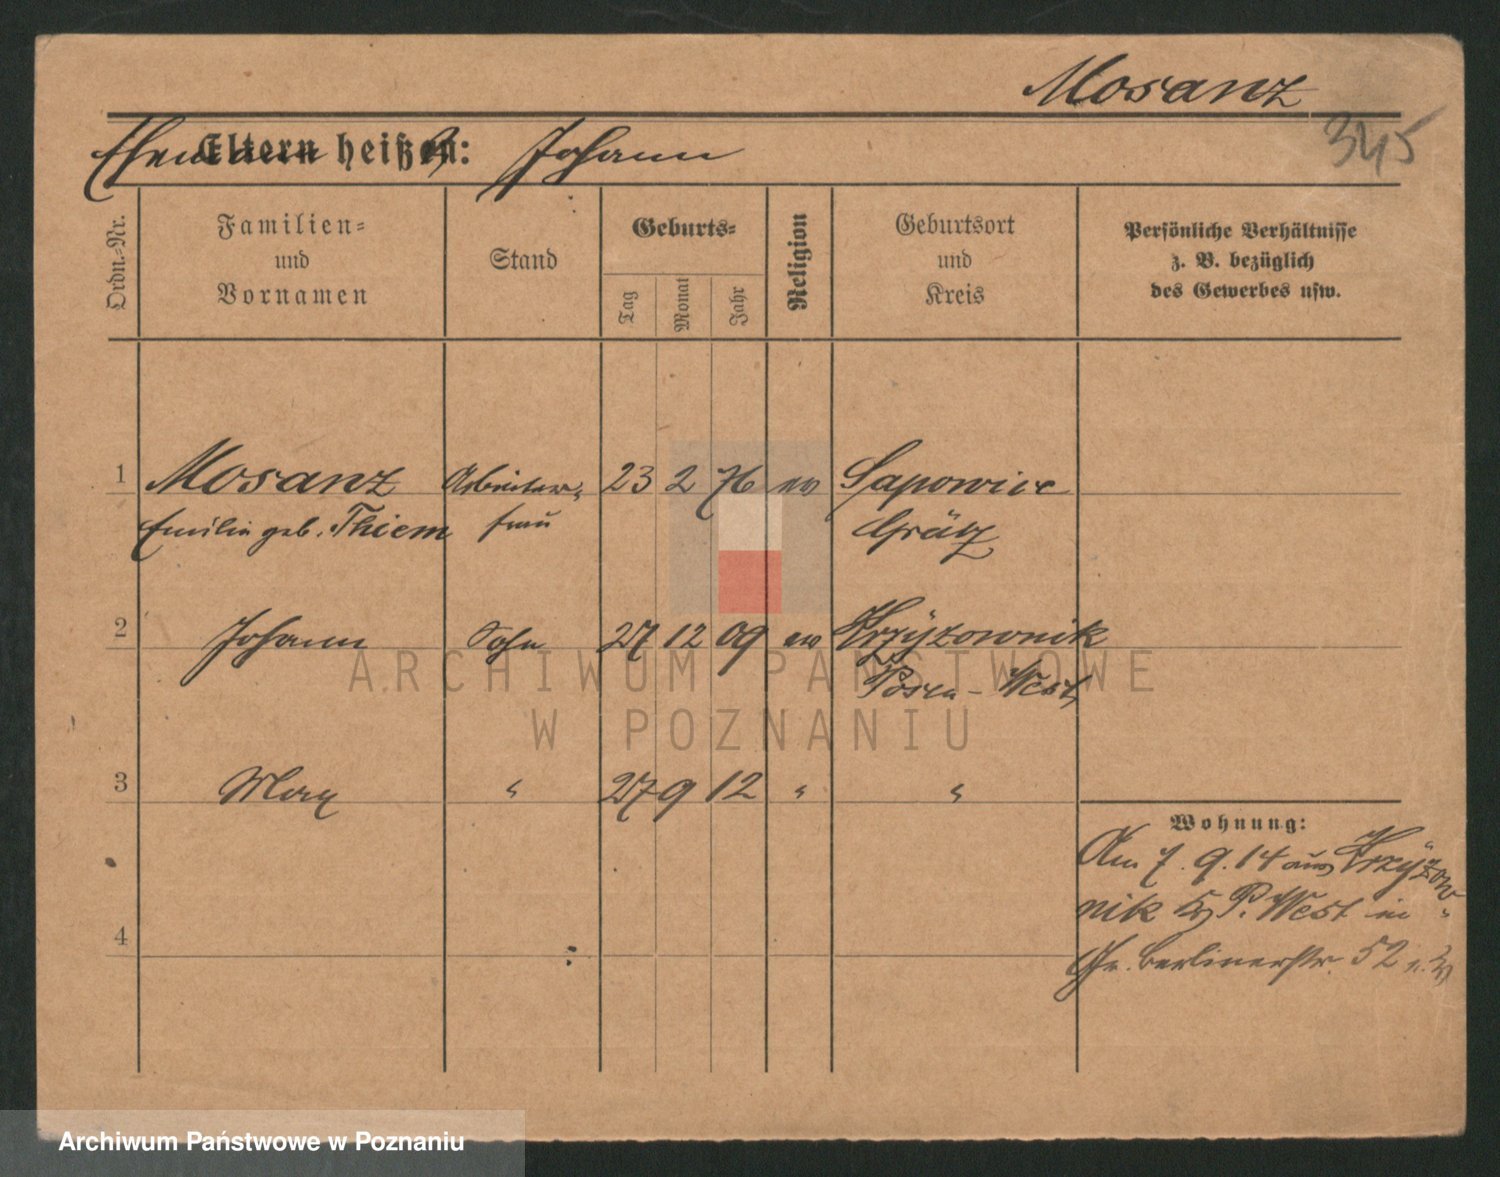 Mosanz
345
Ehemann heißt: Johann
Ordn.-Nr.
Familien-
und
Vornamen
Stand
Geburts-
Tag
Monat
Jahr
Religion
Geburtsort
und
Kreis
Persönliche Verhältnisse
z. B. bezüglich
des Gewerbes usw.
1 Mosanz Arbeiter- 23 2 76 ev Sapowice
Emilie geb. Thiem frau Grätz
2 Johann Sohn 27 12 09 ev Krzyzownik
Posen-West
3 Max " 27 9 12 " "
Wohnung:
Am 7.9.14 aus Krzyzow-
nik P. West in
4
Gr. Berlinerstr. 52
ARCHIWUM PAŃSTWOWE
W POZNANIU
Archiwum Państwowe w Poznaniu